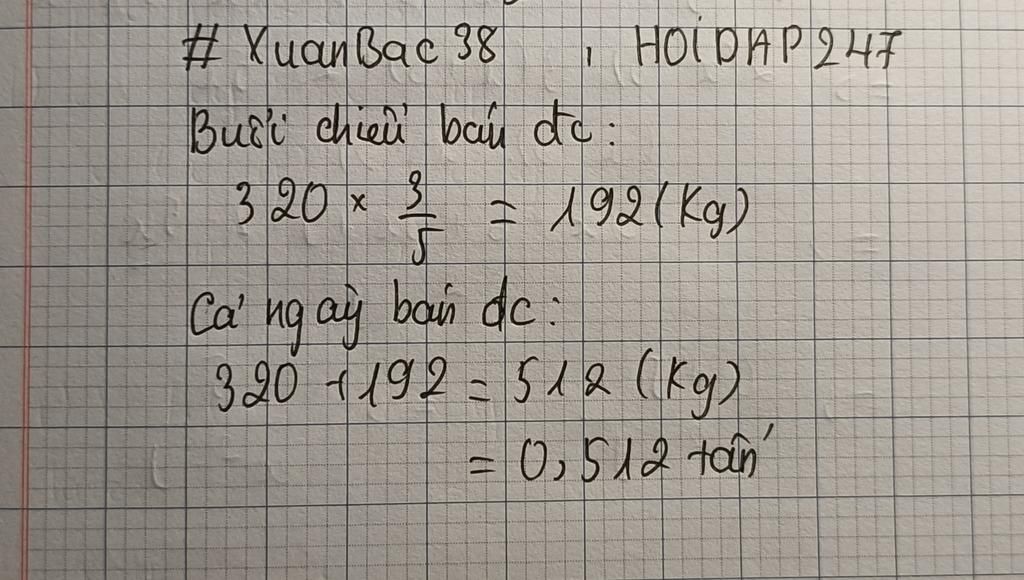 # XuanBac 38 , HOIDAP247
Buổi chiều bán đc:
320 × 3/5 = 192 (Kg)
Cả ngày bán đc:
320 + 192 = 512 (Kg)
= 0,512 tấn